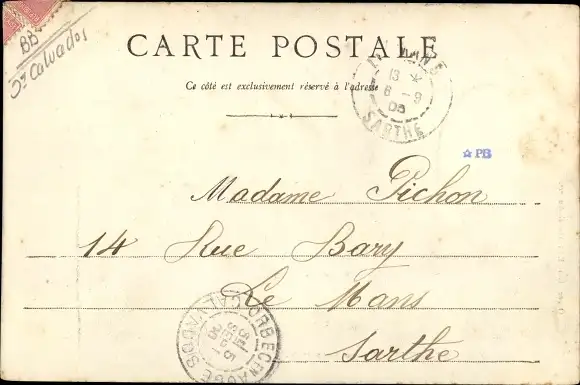 BB
St Calvados
CARTE POSTALE
Ce côté est exclusivement réservé à l'adresse
13 *
6 - 9
05
SARTHE
PB
Madame Pichon
14 Rue Bary
Le Mans
Sarthe
ORBEC EN AUGE CALVADOS
5
SEPT